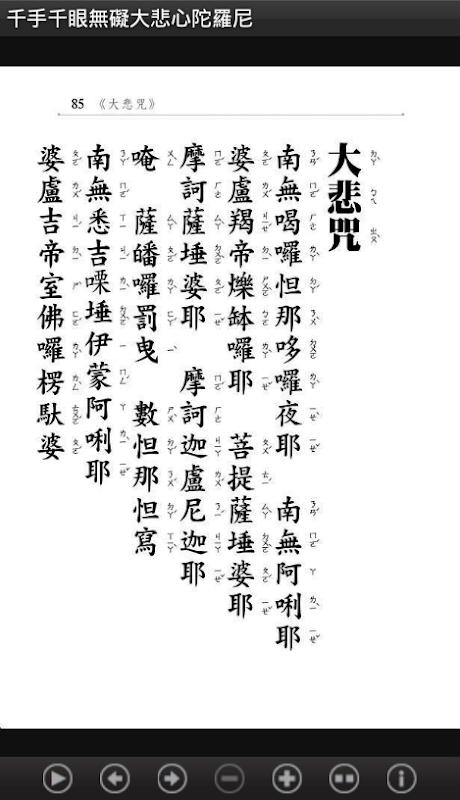 千手千眼無礙大悲心陀羅尼
85 《大悲咒》
大悲咒
南無喝囉怛那哆囉夜耶 南無阿唎耶
婆盧羯帝爍缽囉耶 菩提薩埵婆耶
摩訶薩埵婆耶 摩訶迦盧尼迦耶
唵 薩皤囉罰曳 數怛那怛寫
南無悉吉嘌埵伊蒙阿唎耶
婆盧吉帝室佛囉楞馱婆